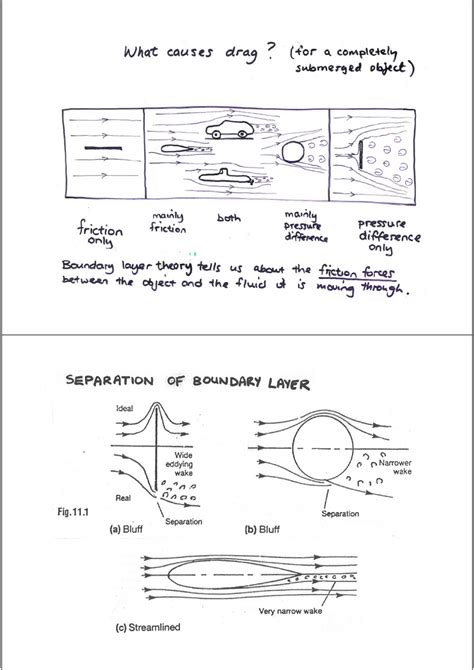 What causes drag? (for a completely
submerged object)
friction
only
mainly
friction
both
mainly
pressure
difference
pressure
difference
only
Boundary layer theory tells us about the friction forces
between the object and the fluid it is moving through.
SEPARATION OF BOUNDARY LAYER
Ideal
Wide
eddying
wake
Real
Separation
Narrower
wake
Separation
Fig.11.1
(a) Bluff
(b) Bluff
Very narrow wake
(c) Streamlined